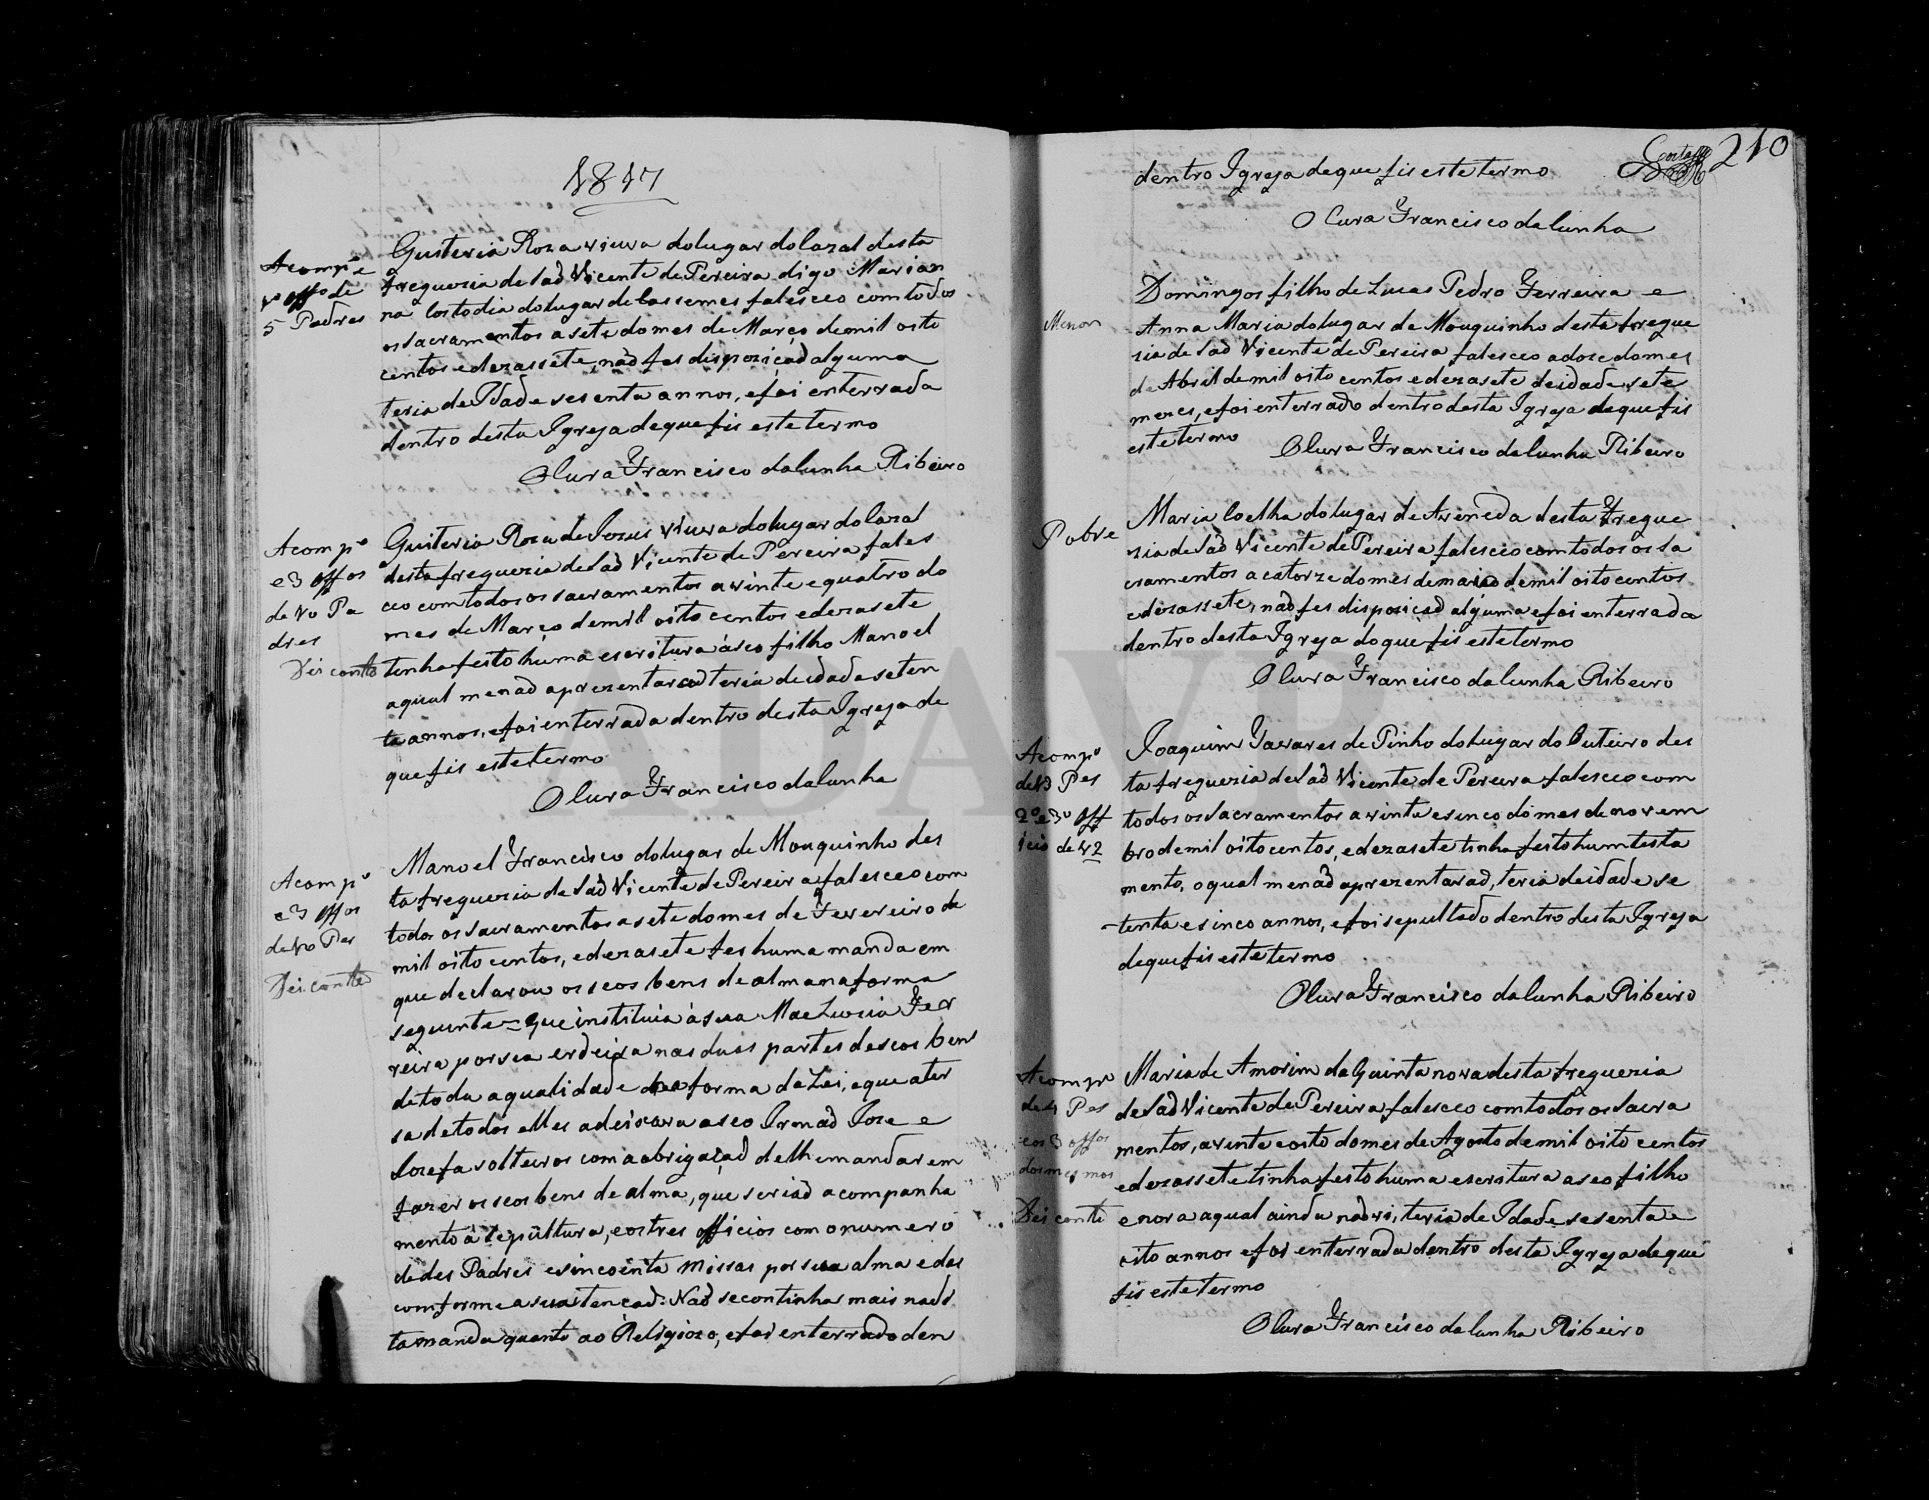 1817
Acomp.e
1º offº de
5 Padres
Guiteria Roza viuva do lugar do Cazal desta
freguezia de Saõ Vicente de Pereira digo Marian
na Costodia do lugar de Cassemes faleseo com todos
os sacramentos a sete do mes de Março de mil oito
centos e dezassete, naõ fes dispoziçaõ alguma
teria de Idade sesenta annos, e foi enterrada
dentro desta Igreja de que fis este termo
O Cura Francisco da Cunha Ribeiro
Acomp.º
e 3 offos
de 10 Pa
dres
Guiteria Roza de Jezus viuva do lugar do Cazal
desta freguezia de Saõ Vicente de Pereira fales
ceo com todos os sacramentos a vinte e quatro do
mes de Março de mil oito centos e dezasete
tinha feito huma escritura á seo filho Manoel
a qual me naõ aprezentaraõ teria de idade seten
ta annos, e foi enterrada dentro desta Igreja de
que fis este termo
O Cura Francisco da Cunha
Acomp.º
e 3 offos
de 10 Pes
Manoel Francisco do lugar de Mouquinho des
ta freguezia de Saõ Vicente de Pereira falesceo com
todos os sacramentos a sete do mes de Fevereiro de
mil oito centos, e dezasete fes huma manda em
que declarou os seos bens de alma na forma
seguinte = que instituia á sua Mae Luzia Fer
reira por sua erdeira nas duas partes de seos bens
de toda a qualidade na forma da Lei, e que a ter
sa de todos elles a deixava a seo Irmaõ Joze e
Jozefa solteiros com a obrigaçaõ de lhe mandarem
fazer os seos bens de alma, que seriaõ acompanha
mento á sepultura, e os tres officios com o numero
de des Padres e sincoenta missas por sua alma e das
comforme a sua tençaõ. Naõ se continha mais nad
ta manda quanto ao Religiozo, e foi enterrado den
210
dentro Igreja de que fis este termo
O Cura Francisco da Cunha
Menor
Domingos filho de Lucas Pedro Ferreira e
Anna Maria do lugar de Mouquinho desta fregue
zia de Saõ Vicente de Pereira falesceo a doze do mes
de Abril de mil oito centos e dezasete de idade sete
mezes, e foi enterrado dentro desta Igreja de que fis
este termo O Cura Francisco da Cunha Ribeiro
Pobre
Maria Coelha do lugar de Azeneda desta Fregue
zia de Saõ Vicente de Pereira falesceo com todos os sa
cramentos a catorze do mes de maio de mil oito centos
e dezassete, naõ fes dispoziçaõ alguma e foi enterrada
dentro desta Igreja do que fis este termo
O Cura Francisco da Cunha Ribeiro
Acomp.º
de 13 Pes
2º e 3º Off
icio de 12
Joaquim Tavares de Pinho do lugar do Outeiro des
ta freguezia de Saõ Vicente de Pereira falesceo com
todos os sacramentos a vinte e sinco do mes de novem
bro de mil oito centos, e dezasete tinha feito hum testa
mento, o qual me naõ aprezentaraõ, teria de idade se
tenta e sinco annos, e foi sepultado dentro desta Igreja
de que fis este termo
O Cura Francisco da Cunha Ribeiro
Acompº
de 4 Pes
e os 3 offos
dos mesmos
Maria de Amorim da Quinta nova desta freguezia
de Saõ Vicente de Pereira falesceo com todos os sacra
mentos, a vinte e oito do mes de Agosto de mil oito centos
e dezassete tinha feito huma escritura a seo filho
e nora a qual ainda naõ vi, teria de Idade sesenta e
oito annos e foi enterrada dentro desta Igreja de que
fis este termo
O Cura Francisco da Cunha Ribeiro